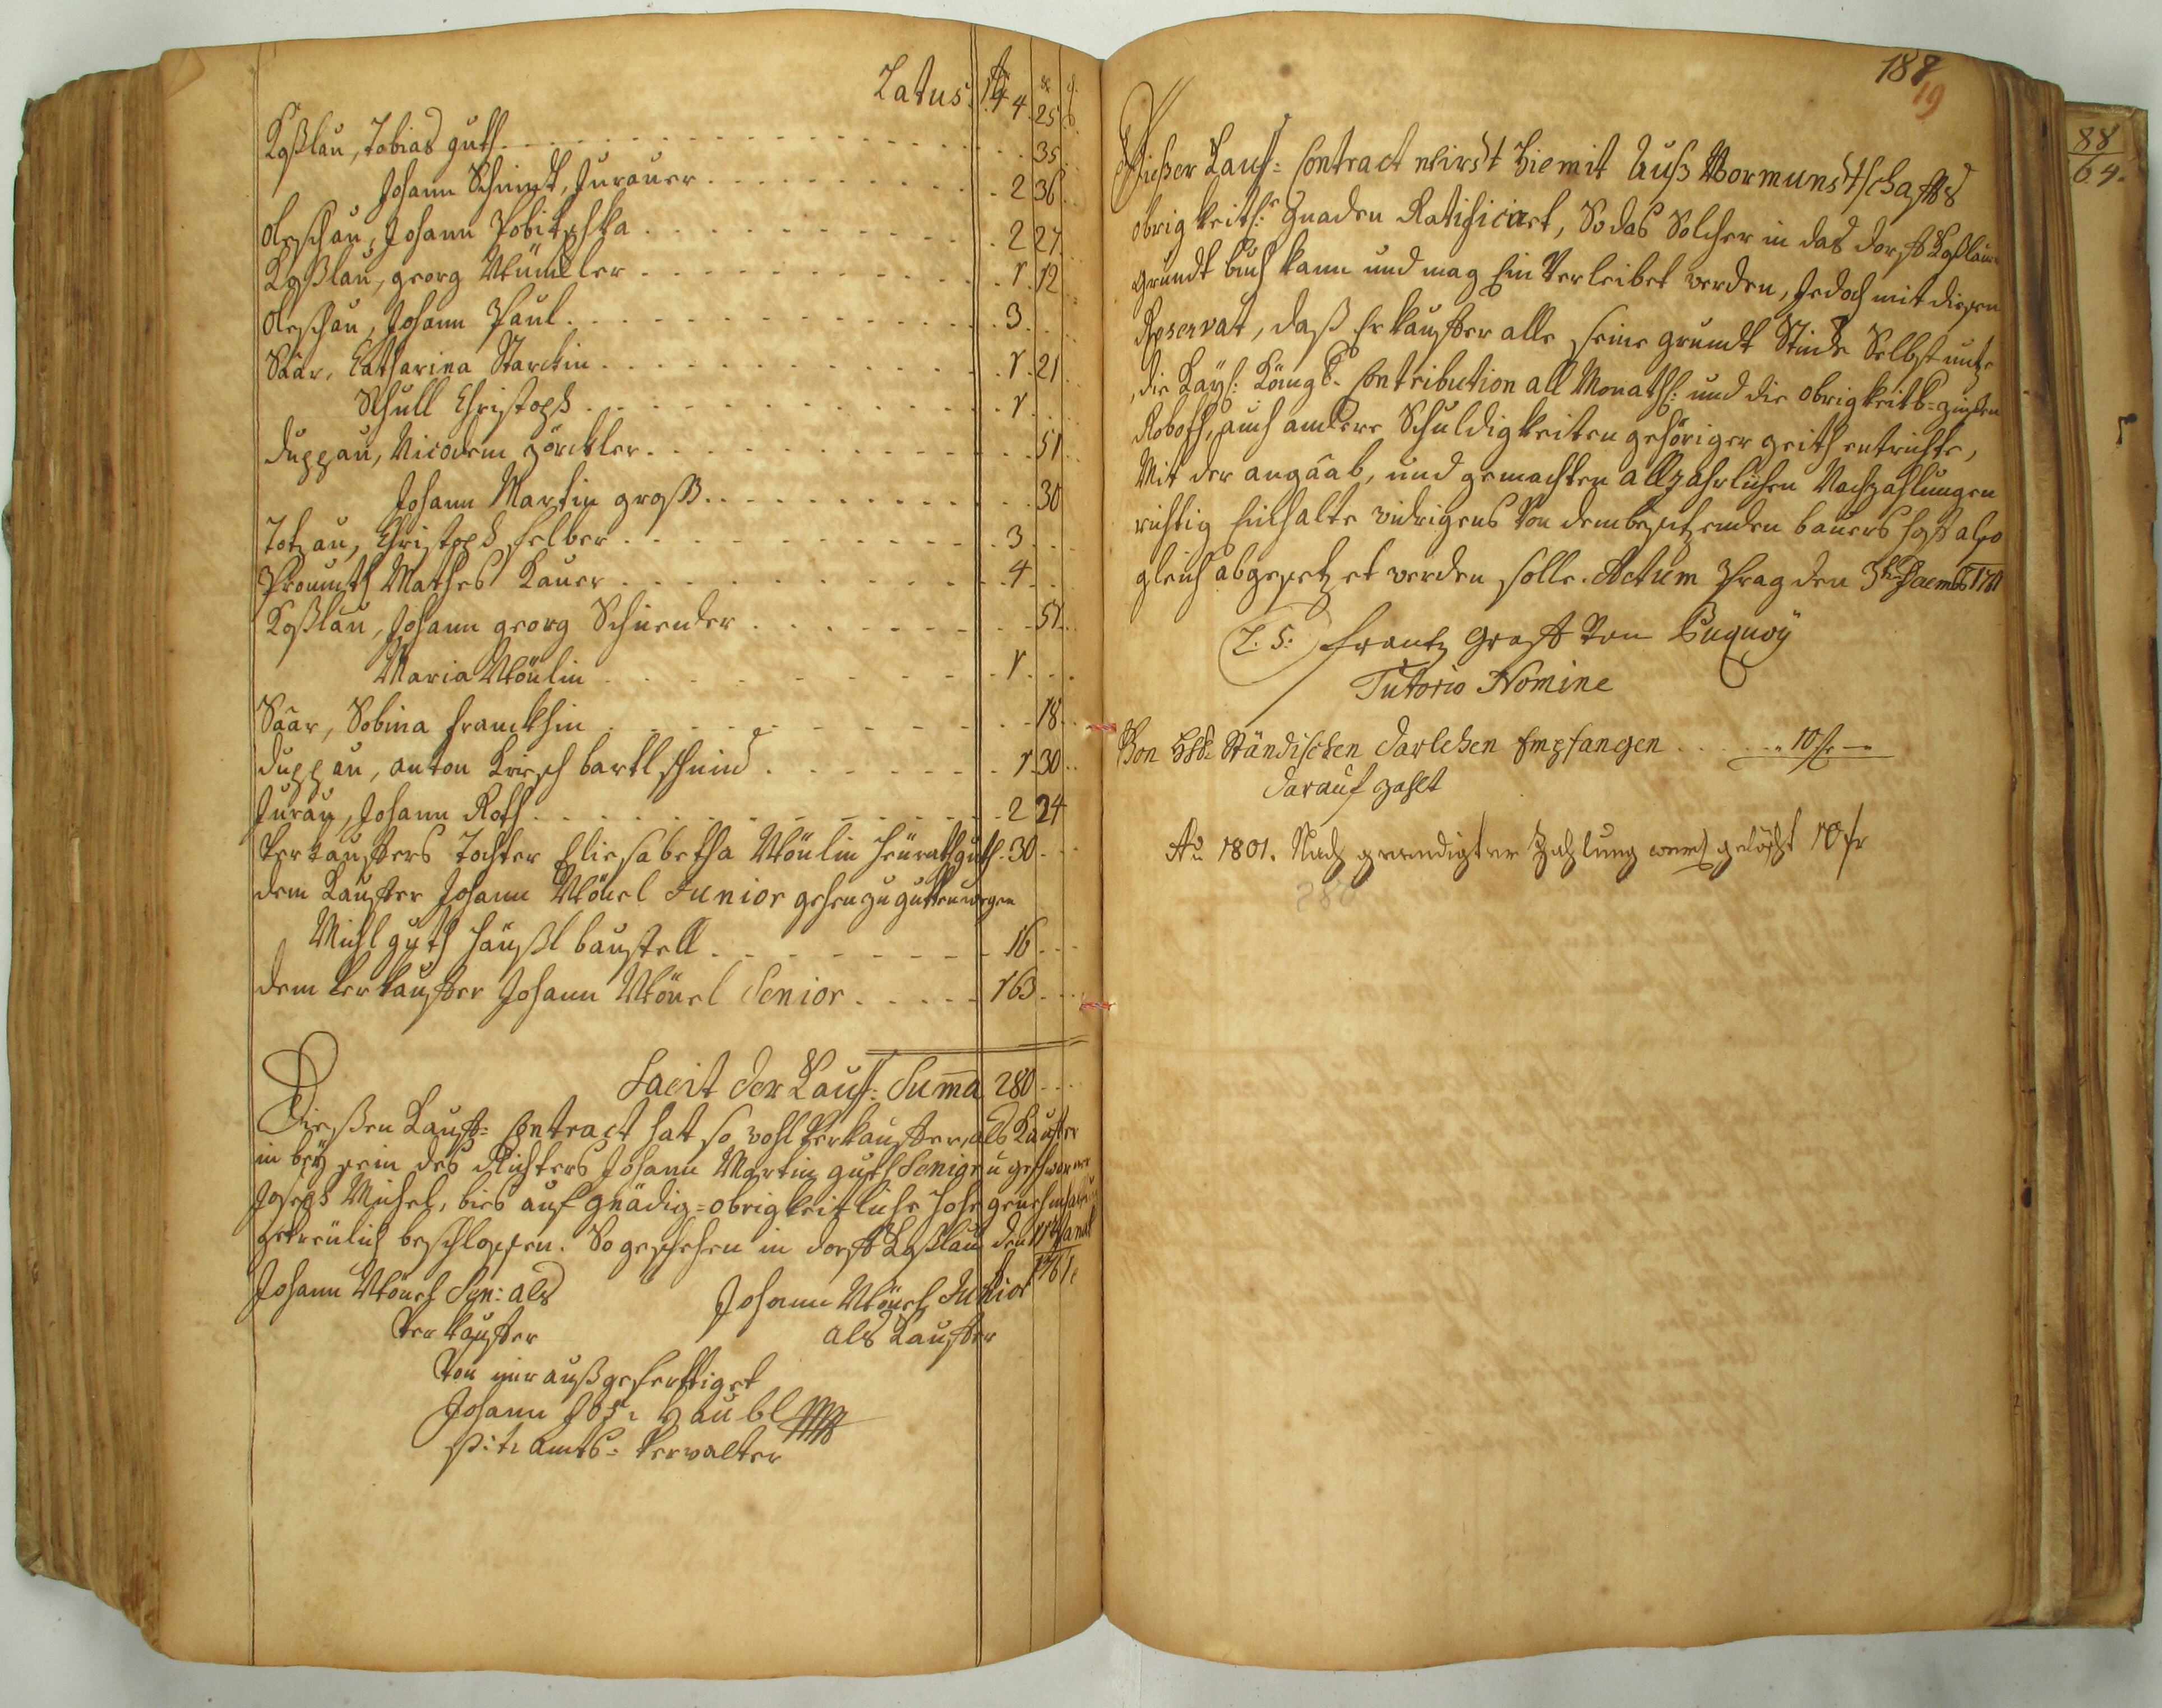 Latus: 44 25 6
Koßlau, Tobias Guth 35
Johann Schmidt, Jurauer 2 36
Oleschau, Johann Pobitschka 2 27
Koßlau, Georg Müller 1 12
Oleschau, Johann Paul 3
Saar, Catharina Starckin 1 21
Schull Christoph 1
Duppau, Nicodem Zörckler 51
Johann Martin Groß 30
Totzau, Christoph Felber 3
Promuth Mathes Bauer 4
Koßlau, Johann Georg Schneider 51
Maria Mönlin 1
Saar, Sobina Franckhin 18
Duppau, Anton Kirsch Bartlschmid 1 30
Jurau, Johann Roth 2 24
Verkauffers Tochter Eliesabetha Mönlin Heurathguth 30
dem Kauffer Johann Mönel Junior gehen zu gutten wegen
Michl Guth Häußl baustell 16
dem Verkauffer Johann Mönel Senior 163
Facit der Kauf: Summa 280
Dießen Kauff: Contract hat so wohl Verkauffer, als Kauffer
in beysein des Richters Johann Martin Guth Senior u geschworner
Joseph Michel, bies auf gnädig=obrigkeitliche hohe genehmhaltung
getreulich beschlossen. So geschehen in dorff Koßlau den
Johann Mönel Sen: als Johann Mönel Junior
Verkauffer als Kauffer
Von mir außgeferttiget
Johann Jos:
p: t: Amts=Verwalter
188
19
Dießer Kauf: Contract wirdt hiemit Auß Vormundtschaffts
obrigkeith: Gnaden Ratificiret, So das Solcher in das dorff Koßlauer
Grundt buch kann und mag Ein Verleibet werden, Jedoch mit diesen
Reservat, daß Erkauffer alle seine grundt Stücke Selbst nutze
die Kays: Königl: Contribution all Monathl: und die obrigkeitl: zinsen
Roboth, auch andere Schuldigkeiten gehöriger zeith entrichte,
Mit der angaab, und gemachten alljahrlichen Nachzahlungen
richtig Einhalte widrigens Von dem besitzenden bauers hoff also
gleich abgesetzet werden solle. Actum Prag den 3t
L. S: Frantz Graff Von Buquoÿ
Tutorio Nomine
Von Ständischen Darlehen Empfangen 10 fr
darauf zahlt
Ao 1801. Nach geendigter Zahlung gelöscht 10 fr
88
64.